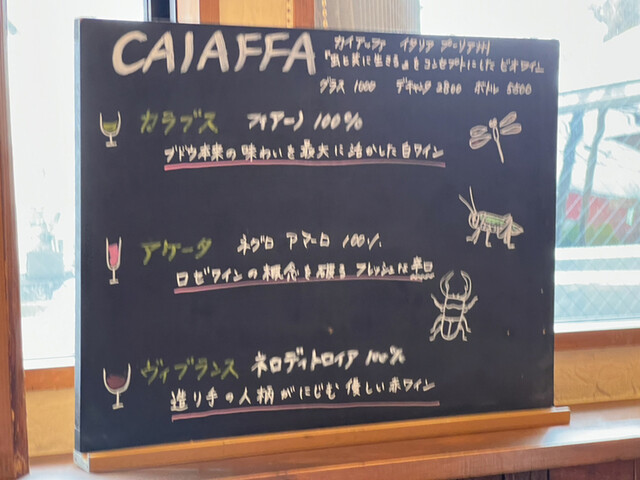 CAIAFFA
カイアーファ イタリア プーリア州
『虫と共に生きる』をコンセプトにしたビオワイン
グラス 1000 デキャンタ 2800 ボトル 5500
カラブス フィアーノ 100%
ブドウ本来の味わいを最大に活かした白ワイン
アケータ ネグロ アマーロ 100%
ロゼワインの概念を破るフレッシュな辛口
ヴィブランス ネロディトロイア 100%
造り手の人柄がにじむ優しい赤ワイン